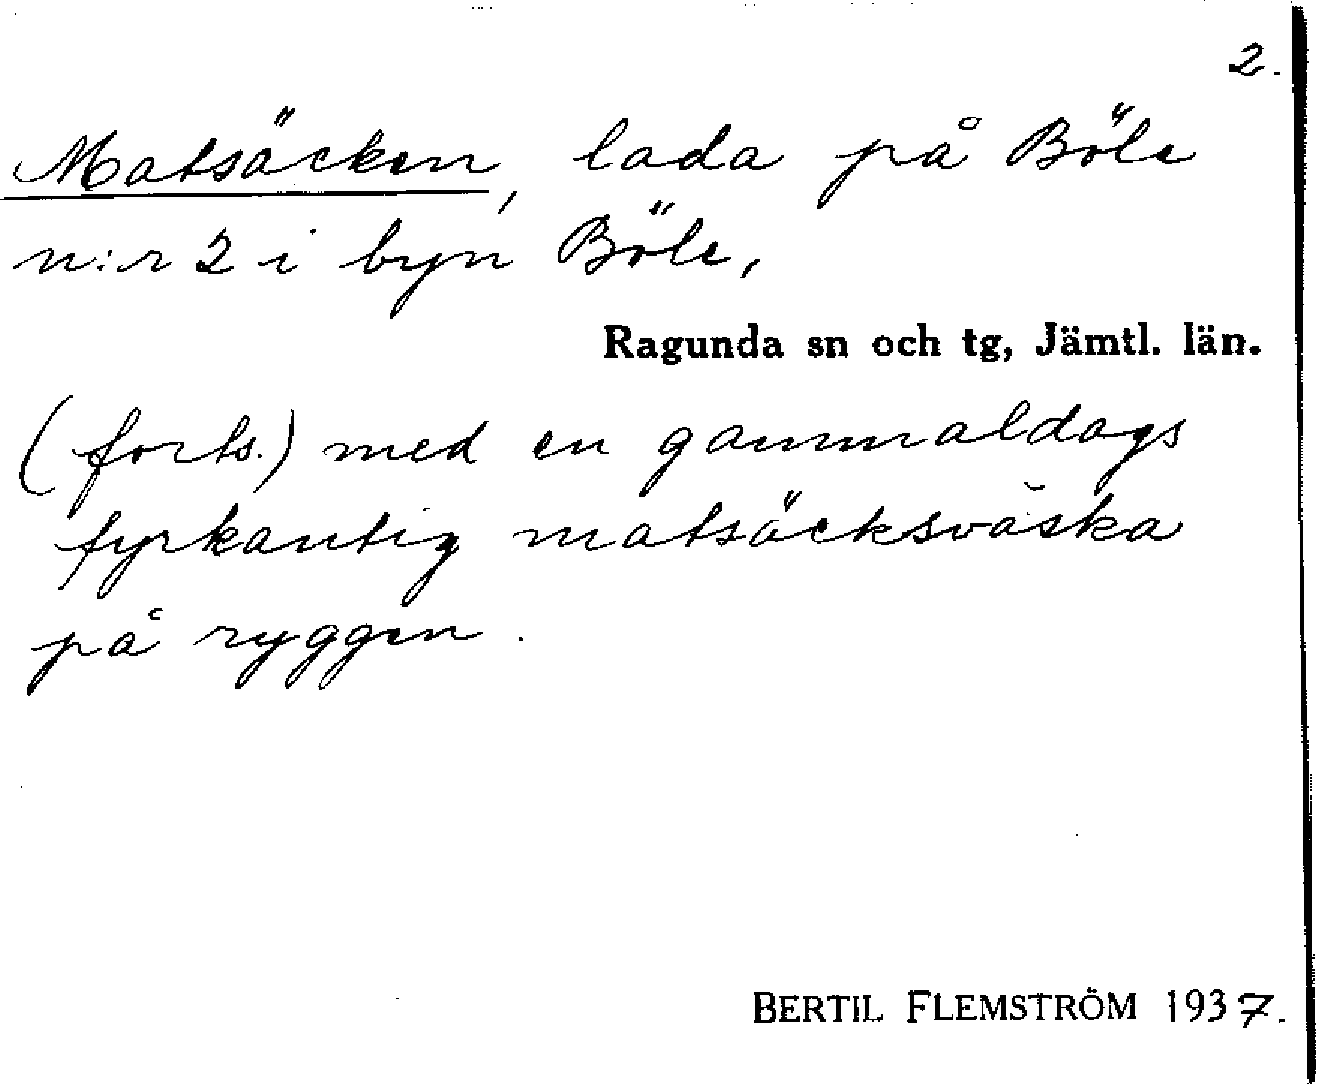 2.
Matsäcken, lada på Böle
n:r 2 i byn Böle,
Ragunda sn och tg, Jämtl. län.
(forts.) med en gammaldags
fyrkantig matsäcksväska
på ryggen.
BERTIL FLEMSTRÖM 1937.